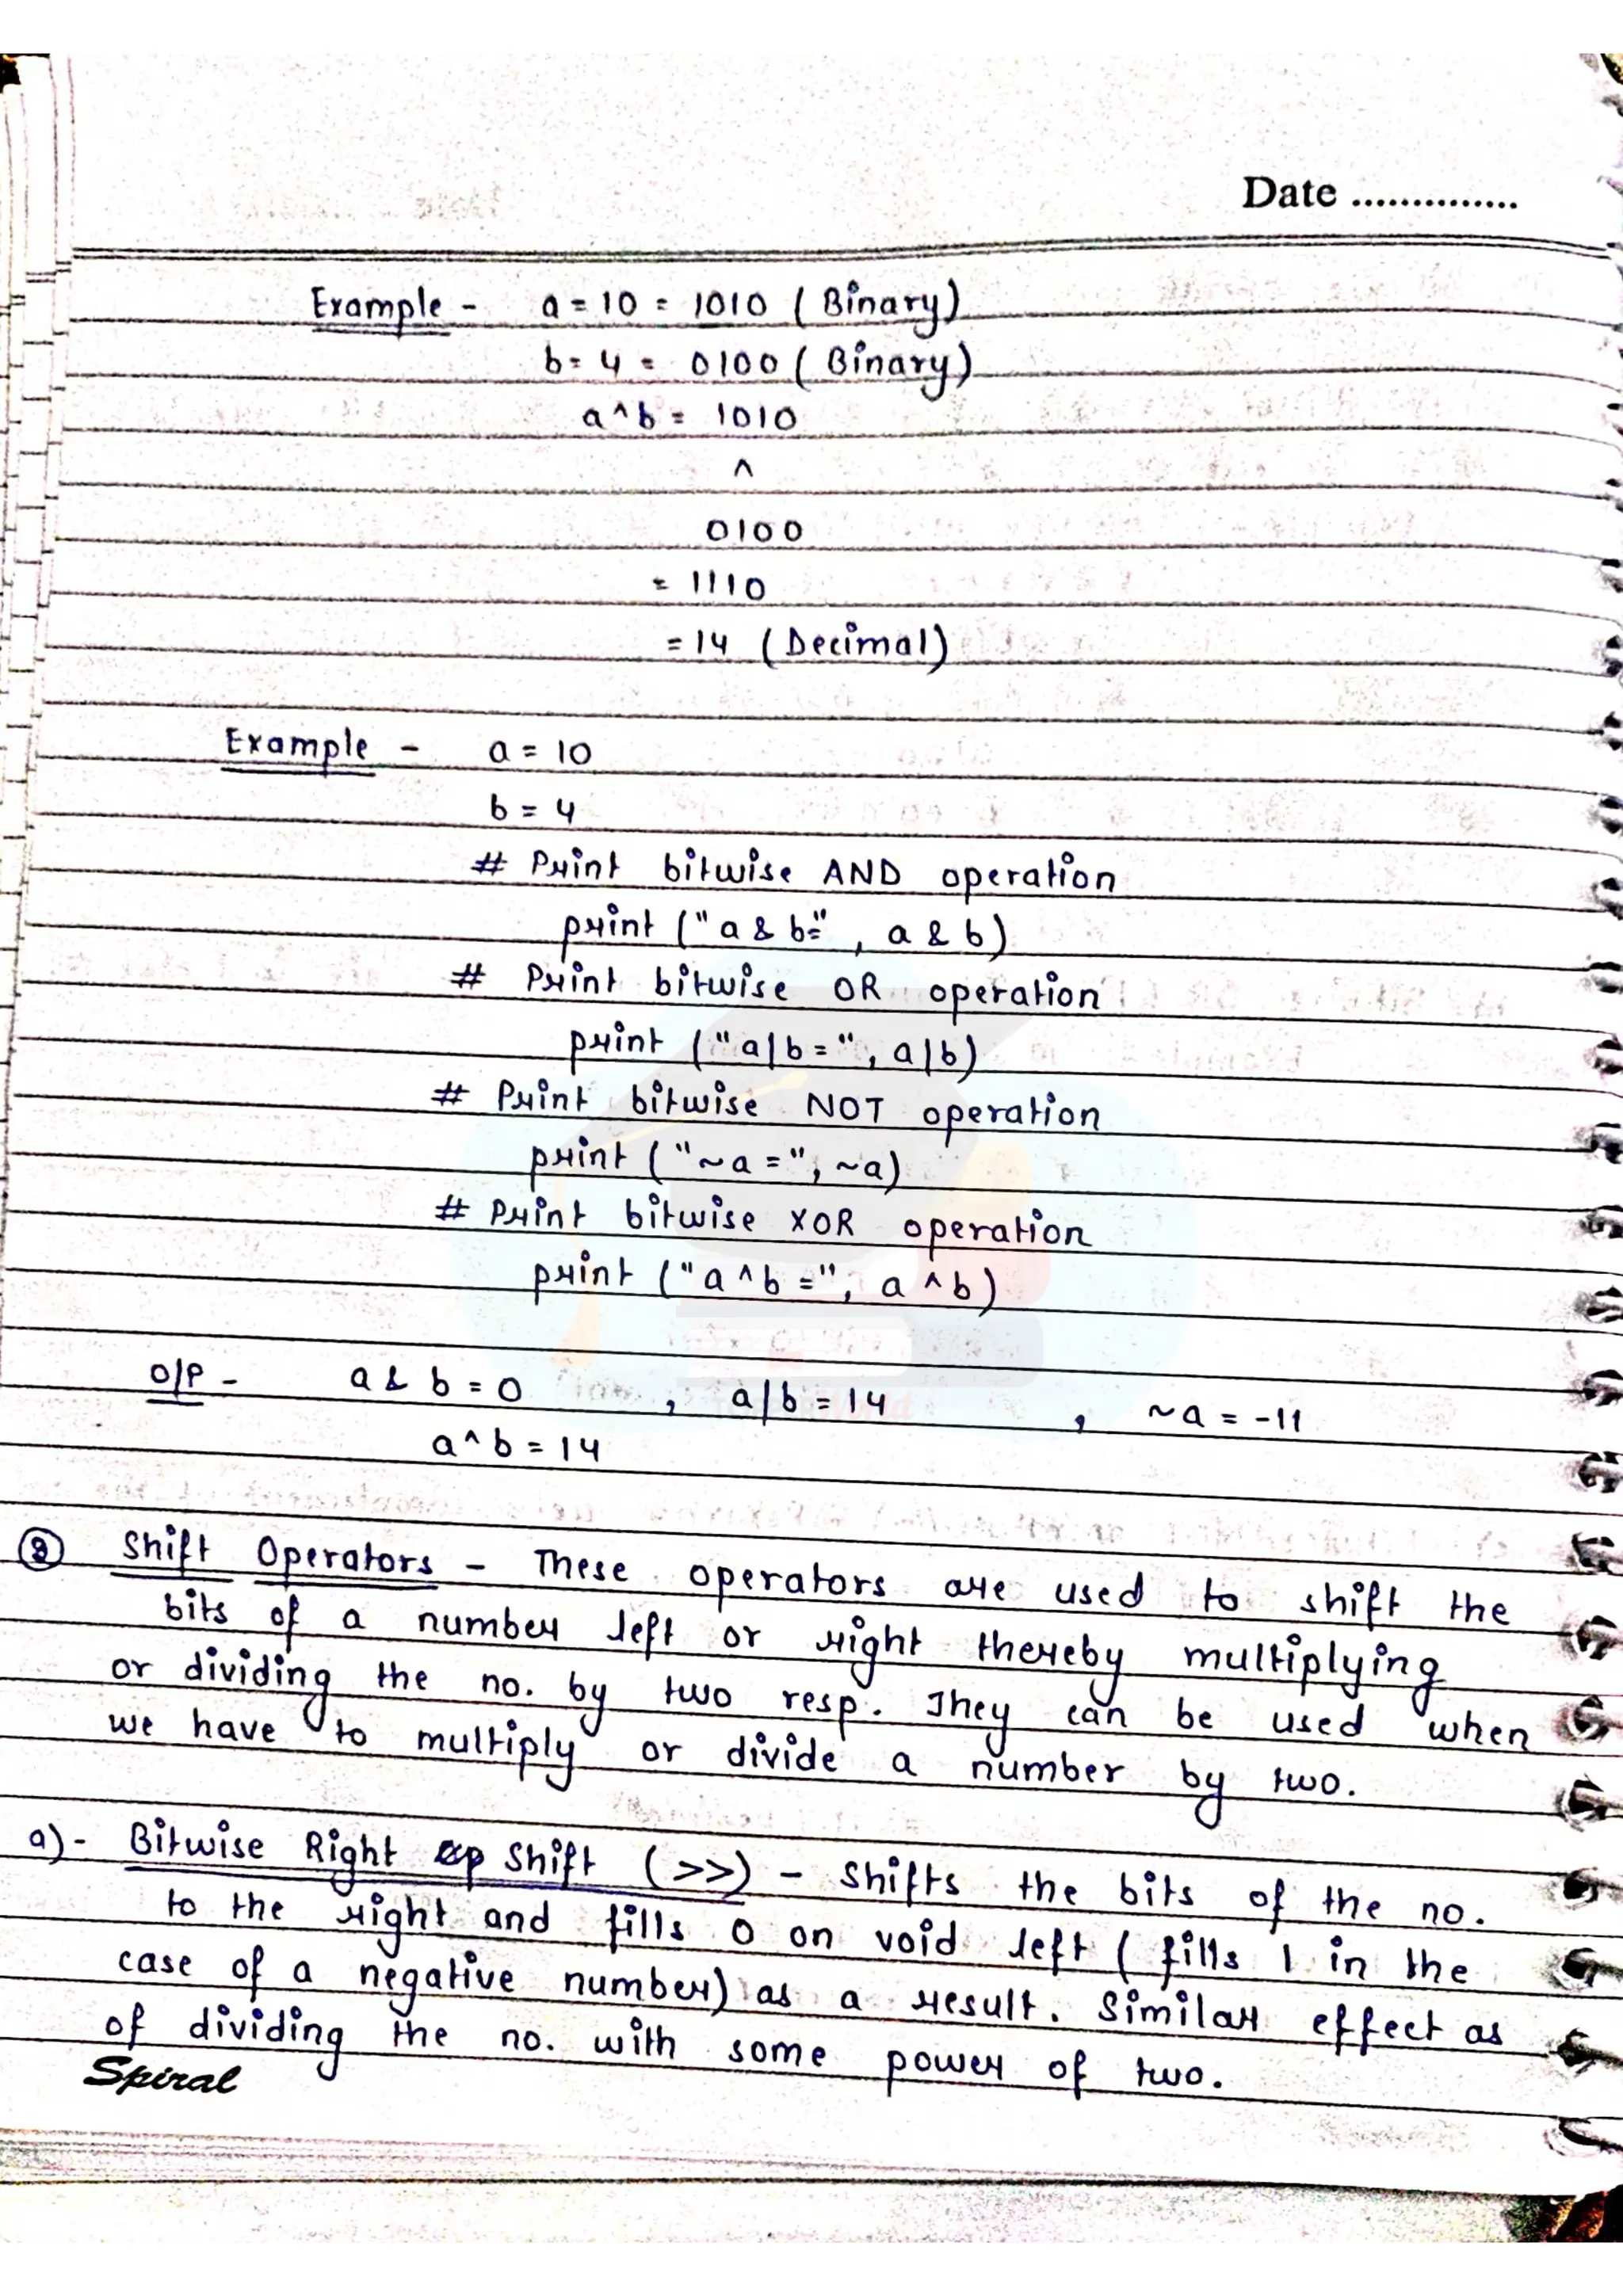 Date ..............
Example - a = 10 = 1010 ( Binary)
b = 4 = 0100 ( Binary)
a ^ b = 1010
^
0100
= 1110
= 14 (Decimal)
Example - a = 10
b = 4
# Print bitwise AND operation
print (" a & b=" , a & b)
# Print bitwise OR operation
print ("a|b = ", a|b)
# Print bitwise NOT operation
print ( "~a = ", ~a)
# Print bitwise XOR operation
print ("a ^ b =", a ^ b)
O/P - a & b = 0 , a|b = 14 , ~a = -11
a ^ b = 14
③ Shift Operators - These operators are used to shift the
bits of a number left or right thereby multiplying
or dividing the no. by two resp. They can be used when
we have to multiply or divide a number by two.
a) - Bitwise Right Shift (>>) - Shifts the bits of the no.
to the right and fills 0 on void left ( fills 1 in the
case of a negative number) as a result. Similar effect as
of dividing the no. with some power of two.
Spiral